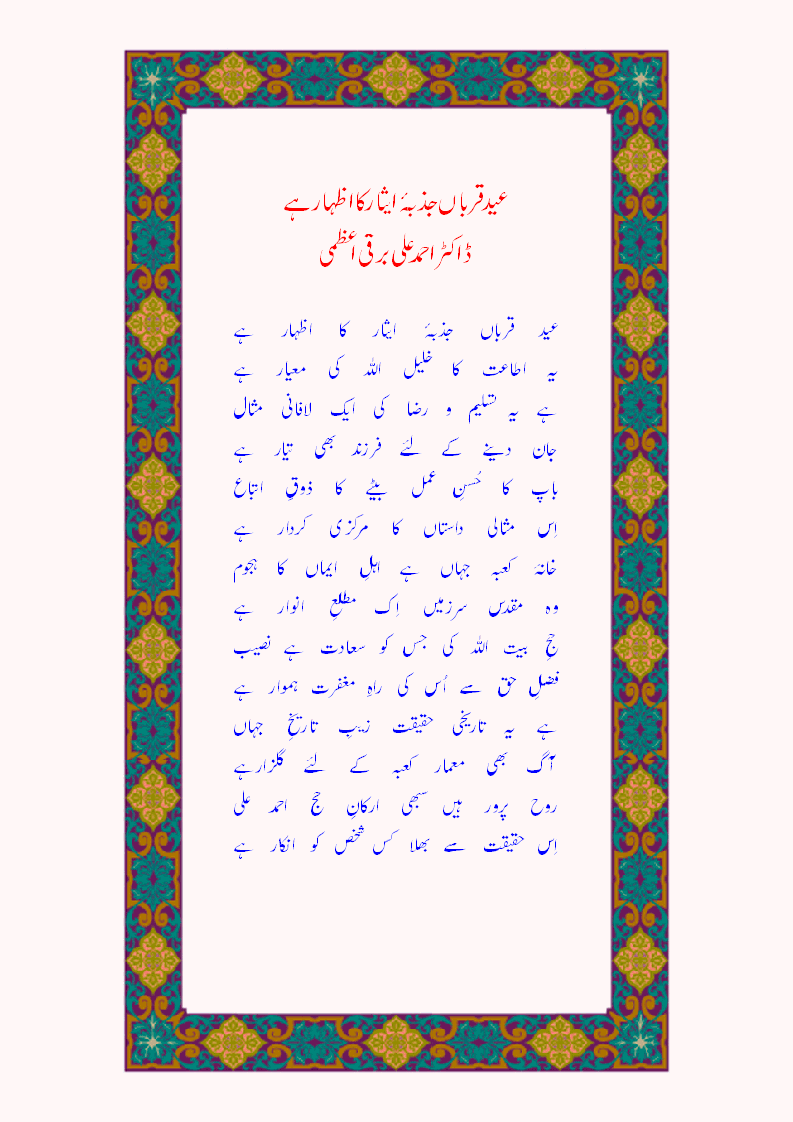 عید قرباں جذبۂ ایثار کا اظہار ہے
ڈاکٹر احمد علی برقی اعظمی
عید قرباں جذبۂ ایثار کا اظہار ہے
یہ اطاعت کا خلیل اللہ کی معیار ہے
ہے یہ تسلیم و رضا کی ایک لافانی مثال
جان دینے کے لئے فرزند بھی تیار ہے
باپ کا حُسنِ عمل بیٹے کا ذوقِ اتباع
اِس مثالی داستاں کا مرکزی کردار ہے
خانۂ کعبہ جہاں ہے اہلِ ایماں کا ہجوم
وہ مقدس سرزمیں اِک مطلعِ انوار ہے
حجِ بیت اللہ کی جس کو سعادت ہے نصیب
فضلِ حق سے اُس کی راہِ مغفرت ہموار ہے
ہے یہ تاریخی حقیقت زیبِ تاریخِ جہاں
آگ بھی معمار کعبہ کے لئے گلزار ہے
روح پرور ہیں سبھی ارکانِ حج احمد علی
اِس حقیقت سے بھلا کس شخص کو انکار ہے